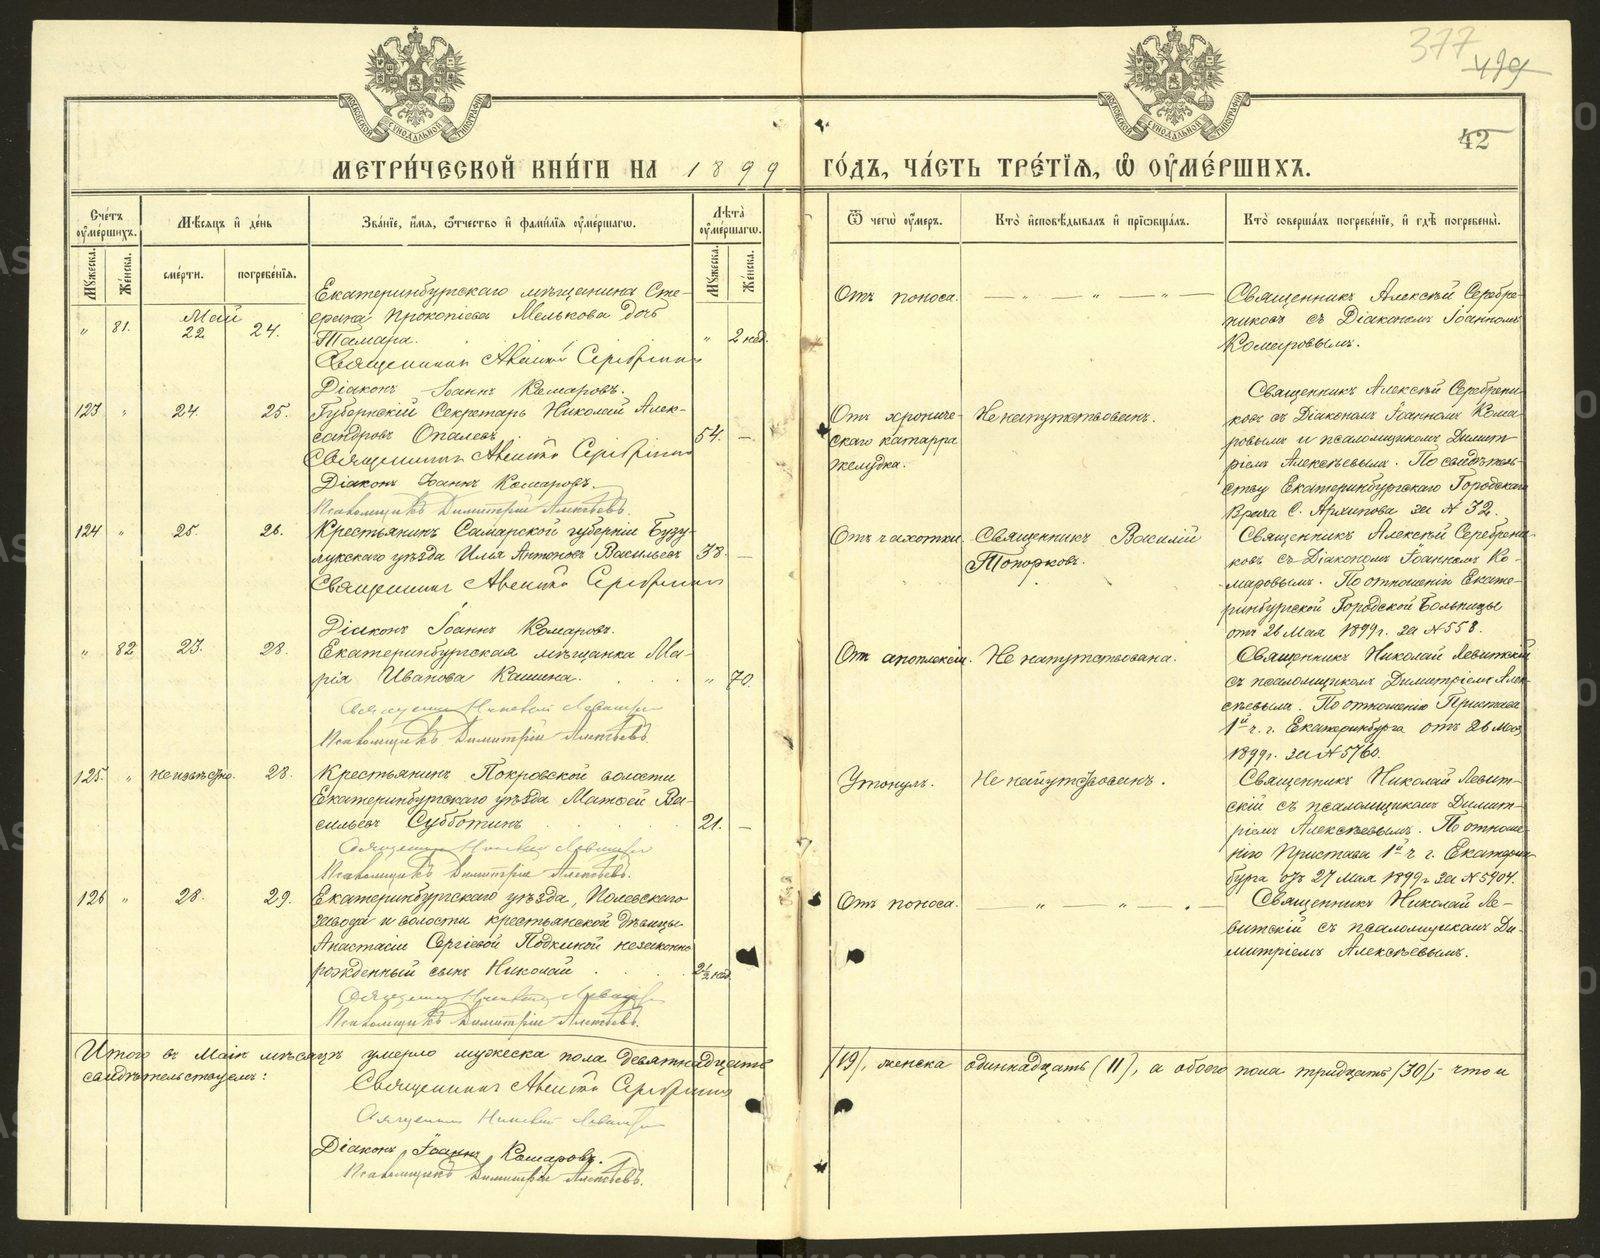 377
499
42
МЕТРИ́ЧЕСКОЙ КНИ́ГИ НА 1899 ГО́ДЪ, ЧА́СТЬ ТРЕ́ТІѦ, Ѡ ОУМЕ́РШИХЪ.
Сче́тъ оумершихъ.
Мѣсяцъ и де́нь
Зва́ніе, и́мя, о́тчество и фами́лія оуме́ршагѡ.
Лѣта̀ оуме́ршагѡ.
Ѿ чегѡ̀ оу́меръ.
Кто̀ исповѣ́дывалъ и пріѡбща́лъ.
Кто̀ соверша́лъ погребе́ніе, и гдѣ̀ погребены̀.
Мужеска.
Же́нска.
сме́рти.
погребе́нія.
Мужеска.
Же́нска.
" 81. Май 22 24.
Екатеринбургскаго мѣщанина Сте-
фана Прокопіева Мелькова дочь
Тамара. " 2 нед.
Священникъ Алексѣй Серебрениковъ
Діаконъ Іоаннъ Комаровъ.
Отъ поноса. — " — " — " —
Священникъ Алексѣй Серебре-
никовъ съ Діакономъ Іоанномъ
Комаровымъ.
123 " 24. 25.
Губернскій Секретарь Николай Алек-
сандровъ Опалевъ 54. —
Священникъ Алексѣй Серебрениковъ
Діаконъ Іоаннъ Комаровъ.
Псаломщикъ Димитрій Алексѣевъ.
Отъ хрониче-
скаго катарра
желудка.
Не напутствованъ.
Священникъ Алексѣй Серебрени-
ковъ съ Діакономъ Іоанномъ Кома-
ровымъ и псаломщикомъ Димит-
ріемъ Алексѣевымъ. По свидѣтель-
ству Екатеринбургскаго Городскаго
Врача С. Архипова за № 32.
124 " 25. 26.
Крестьянинъ Самарской губерніи Бузу-
лукскаго уѣзда Илія Антоновъ Васильевъ 38. —
Священникъ Алексѣй Серебрениковъ
Діаконъ Іоаннъ Комаровъ.
Отъ чахотки.
Священникъ Василій
Топорковъ.
Священникъ Алексѣй Серебрени-
ковъ съ Діакономъ Іоанномъ Ко-
маровымъ. По отношенію Екате-
ринбургской Городской Больницы
отъ 26 Мая 1899 г. за № 558.
" 82 23. 28.
Екатеринбургская мѣщанка Ма-
рія Иванова Кашина. " 70.
Священникъ Николай Левитскій
Псаломщикъ Димитрій Алексѣевъ.
От апоплексіи.
Не напутствована.
Священникъ Николай Левитскій
съ псаломщикомъ Димитріемъ Алек-
сѣевымъ. По отношенію Пристава
1й ч. г. Екатеринбурга отъ 26 Мая
1899 г. за № 5760.
125. " неизвѣстно. 28.
Крестьянинъ Покровской волости
Екатеринбургскаго уѣзда Матѳей Ва-
сильевъ Субботинъ 21. —
Священникъ Николай Левитскій
Псаломщикъ Димитрій Алексѣевъ.
Утонулъ.
Не напутствованъ.
Священникъ Николай Левит-
скій съ псаломщикомъ Димит-
ріемъ Алексѣевымъ. По отноше-
нію Пристава 1й ч г. Екатерин-
бурга отъ 27 Мая 1899 г за № 5904.
126 " 28. 29.
Екатеринбургскаго уѣзда, Полевскаго
завода и волости крестьянской дѣвицы
Анастасіи Сергіевой Подкиной незаконно
рожденный сынъ Николай 2½ нед.
Священникъ Николай Левитскій
Псаломщикъ Димитрій Алексѣевъ.
Отъ поноса. — " — " —
Священникъ Николай Ле-
витскій съ псаломщикомъ Ди-
митріемъ Алексѣевымъ.
Итого въ Маѣ мѣсяцѣ умерло мужеска пола девятнадцать /19/, женска одиннадцать (11), а обоего пола тридцать /30/,- что и
свидѣтельствуемъ:
Священникъ Алексѣй Серебрениковъ
Священникъ Николай Левитскій
Діаконъ Іоаннъ Комаровъ.
Псаломщикъ Димитрій Алексѣевъ.